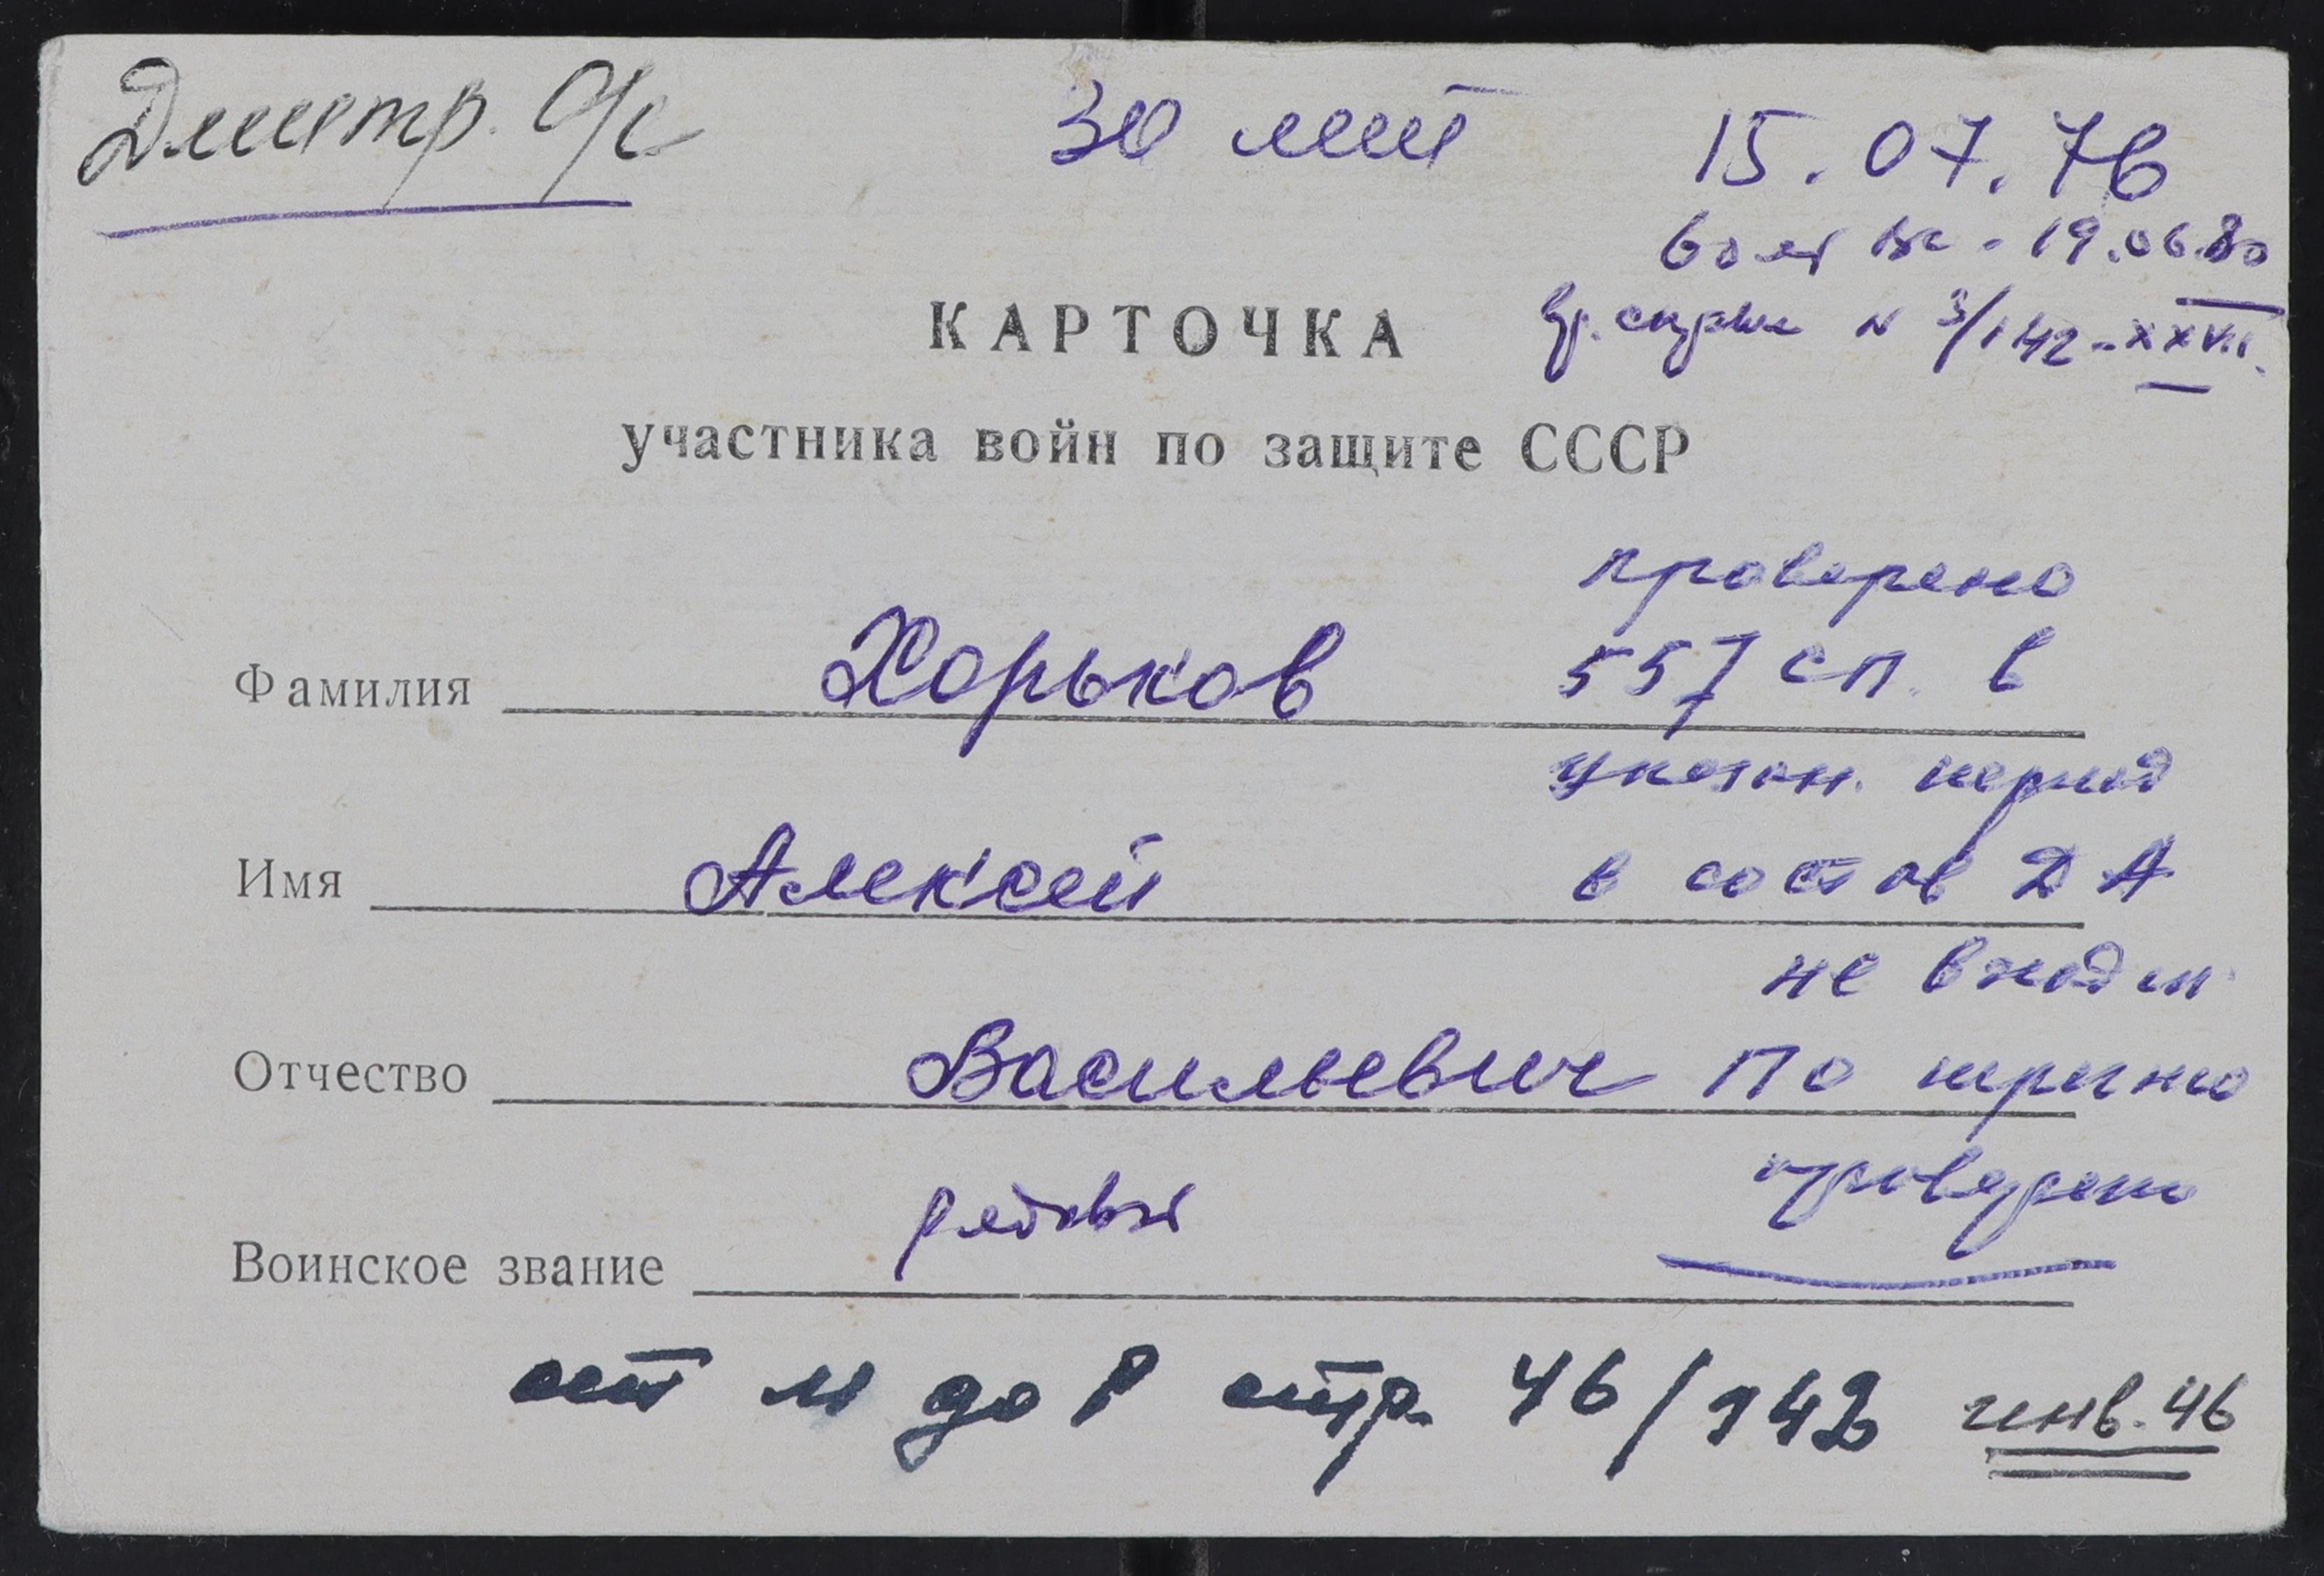 Дмитр. с/с
30 лет
15.07.76
60 лет вс - 19.06.80
КАРТОЧКА
N 3/142-XXVII.
участника войн по защите СССР
проверено
Фамилия Хорьков 557 сп. в
указан. период
Имя Алексей в состав ДА
не входил
Отчество Васильевич По
проверено
Воинское звание рядовой
ост м до Р стр. 46/942 инв. 46